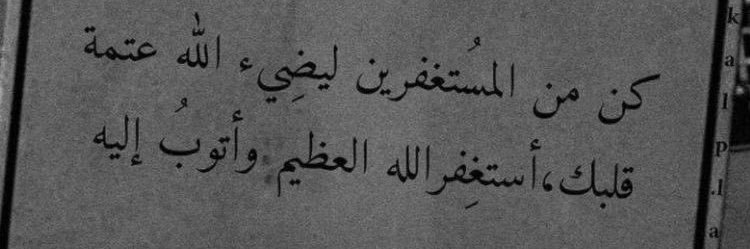 كن من المسُتغفرين ليضِيء الله عتمة
قلبك،أستغِفرالله العظيم وأتوبُ إليه
k
a
l
p
.l
a